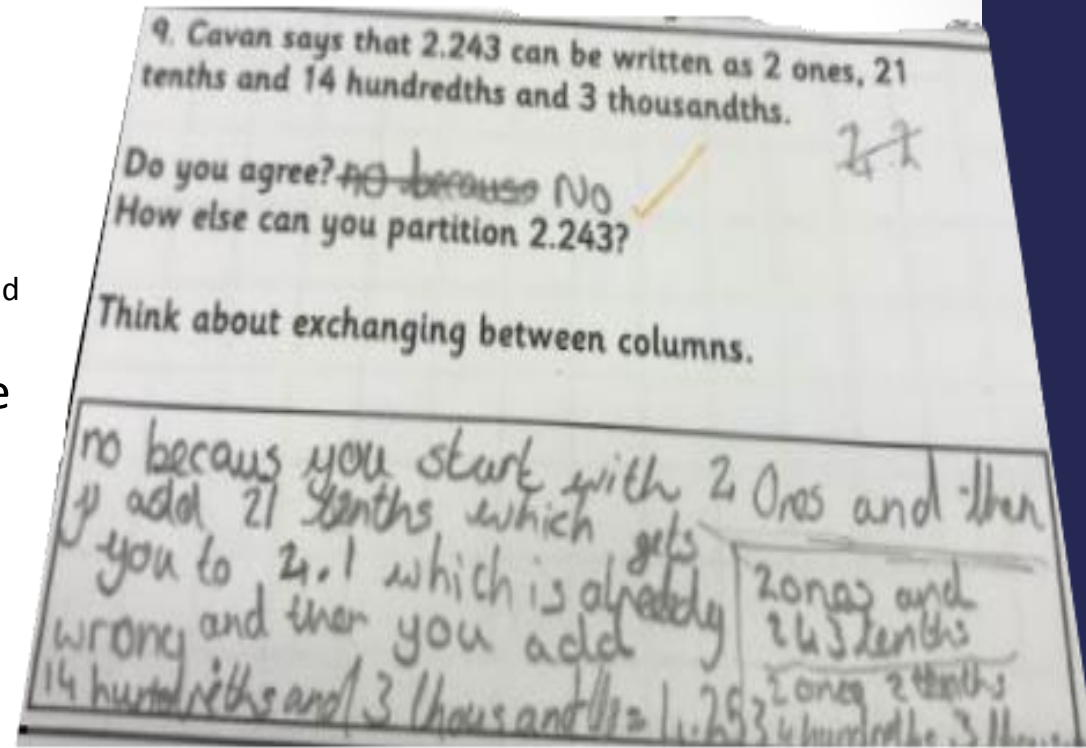 9. Cavan says that 2.243 can be written as 2 ones, 21
tenths and 14 hundredths and 3 thousandths.
Do you agree? no because No
How else can you partition 2.243?
d
Think about exchanging between columns.
e
no becaus you start with 2 Ones and then
y add 21 tenths which gets
you to 4.1 which is already
wrong and then you add
14 hundreths and 3 thousandths =
2 ones and
243 tenths
2 ones 2 tenths
4 hundredths 3 thous